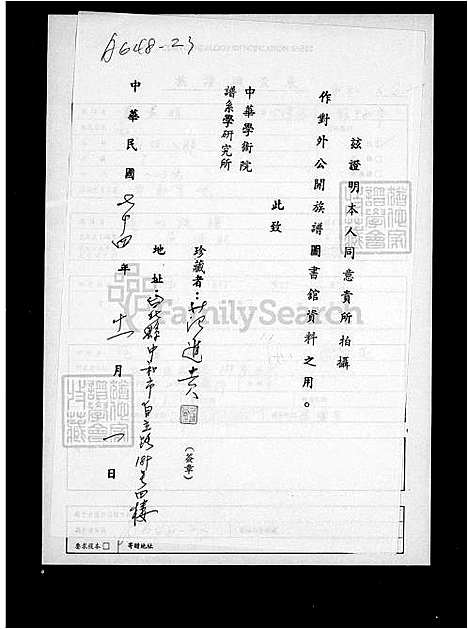 A648-23
茲證明本人同意貴所拍攝
作對外公開族譜圖書館資料之用。
此致
中華學術院
譜系學研究所
珍藏者：范進貴
（簽章）
地址：台北縣中和市自立路189号四樓
中華民國七十四年十一月一日
FamilySearch
要求複本□
寄贈地址